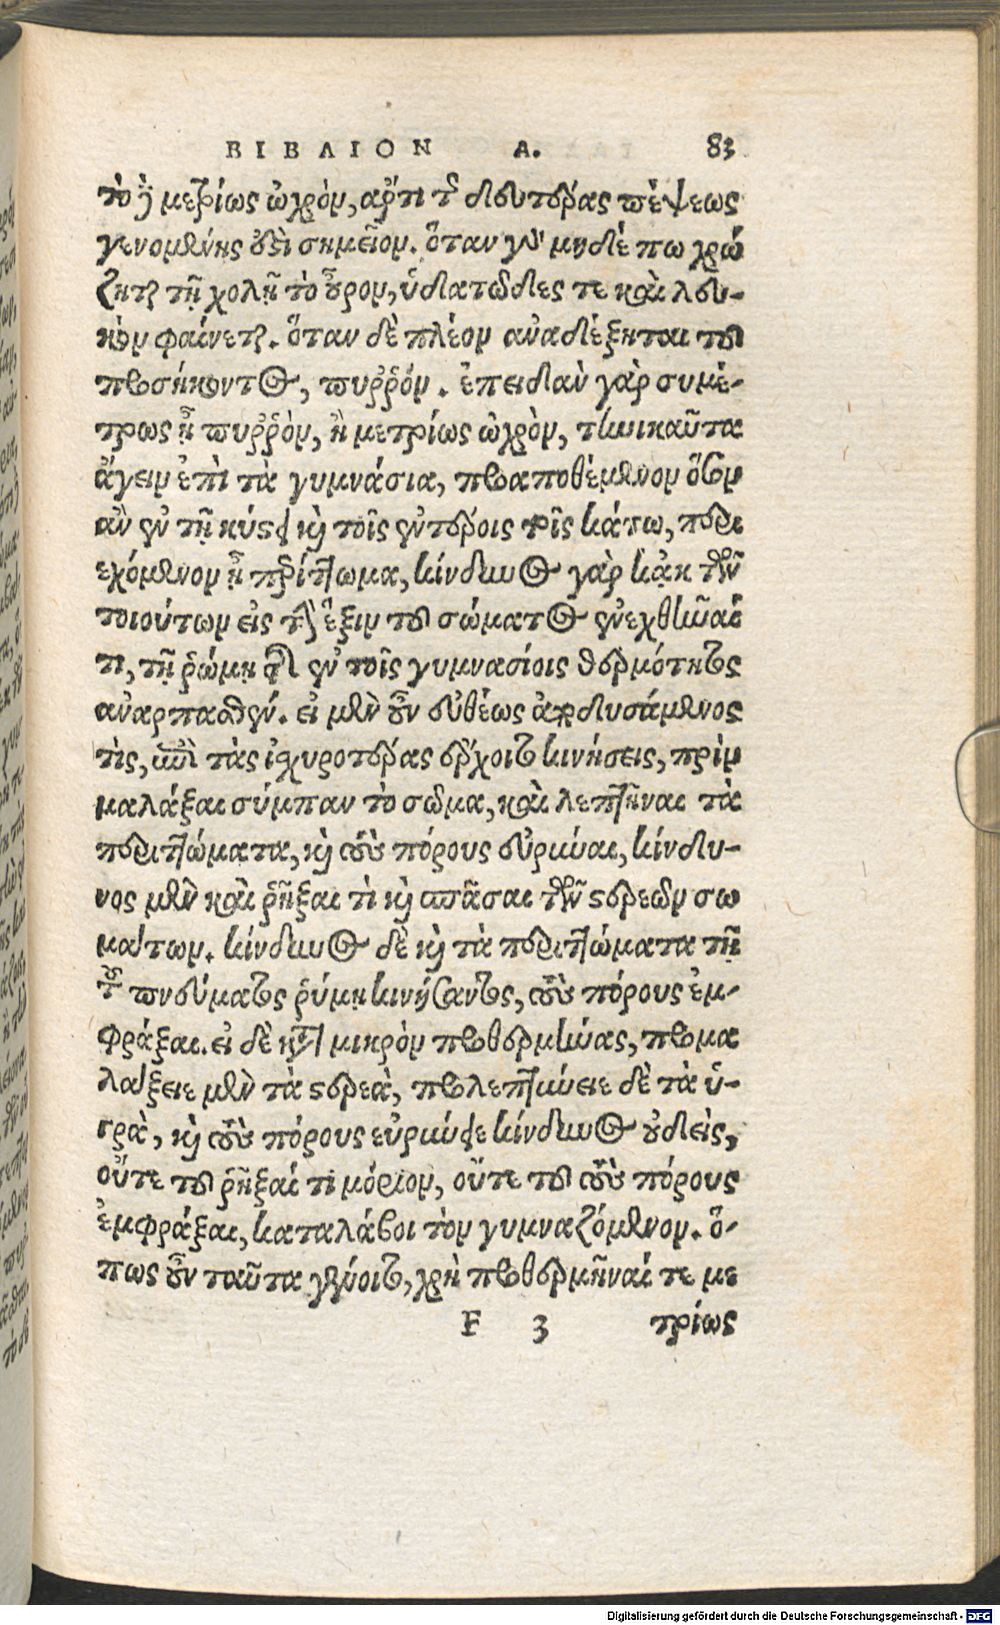 ΒΙΒΛΙΟΝ Α. 83
τὸ δὲ μετρίως ὠχρὸν, ἄρτι τῆς δευτέρας πέψεως
γενομένης ὅδε σημεῖον. ὅταν γὰρ μηδέ πω χρώ
ζηται τῇ χολῇ τὸ οὖρον, ὑδατῶδες τε καὶ λευ-
κὸν φαίνεται. ὅταν δὲ πλέον ἀναδέξηται τοῦ
προσήκοντος, πυῤῥόν. ἐπειδὰν γὰρ συμμέ-
τρως ᾖ πυῤῥὸν, ἢ μετρίως ὠχρὸν, τηνικαῦτα
ἄγειν ἐπὶ τὰ γυμνάσια, προαποθέμενον ὅσον
ἂν ἐν τῇ κύστει καὶ τοῖς ἐντέροις τοῖς κάτω, περι
εχόμενον ᾖ περίττωμα, κίνδυνος γὰρ κᾀκ τῶν
τοιούτων εἰς τὴν ἕξιν τοῦ σώματος ἐνεχθῆναί
τι, τῇ ῥώμῃ τῆς ἐν τοῖς γυμνασίοις θερμότητος
ἀναρπασθέν. εἰ μὲν οὖν εὐθέως ἀποδυσάμενος
τὶς, ἐπὶ τὰς ἰσχυροτέρας ἔρχοιτο κινήσεις, πρὶν
μαλάξαι σύμπαν τὸ σῶμα, καὶ λεπτῦναι τὰ
περιττώματα, καὶ τοὺς πόρους εὐρῦναι, κίνδυ-
νος μὲν καὶ ῥῆξαι τὶ καὶ σπᾶσαι τῶν στερεῶν σω
μάτων. κίνδυνος δὲ καὶ τὰ περιττώματα τῇ
τοῦ πνεύματος ῥύμῃ κινήσαντος, τοὺς πόρους ἐμ-
φράξαι. εἰ δὲ κατὰ μικρὸν προθερμήνας, προμα
λάξειε μὲν τὰ στερεὰ, προλεπτύνειε δὲ τὰ ὑ-
γρὰ, καὶ τοὺς πόρους εὐρύνειε κίνδυνος οὐδεὶς,
οὔτε τοῦ ῥῆξαί τι μόριον, οὔτε τοῦ τοὺς πόρους
ἐμφράξαι, καταλάβοι τὸν γυμναζόμενον. ὅ-
πως οὖν ταῦτα γένοιτο, χρὴ προθερμῆναί τε με
F 3 τρίως
Digitalisierung gefördert durch die Deutsche Forschungsgemeinschaft - DFG